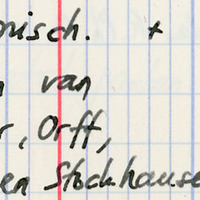 nisch. +
n van
r, Orff,
en Stockhause